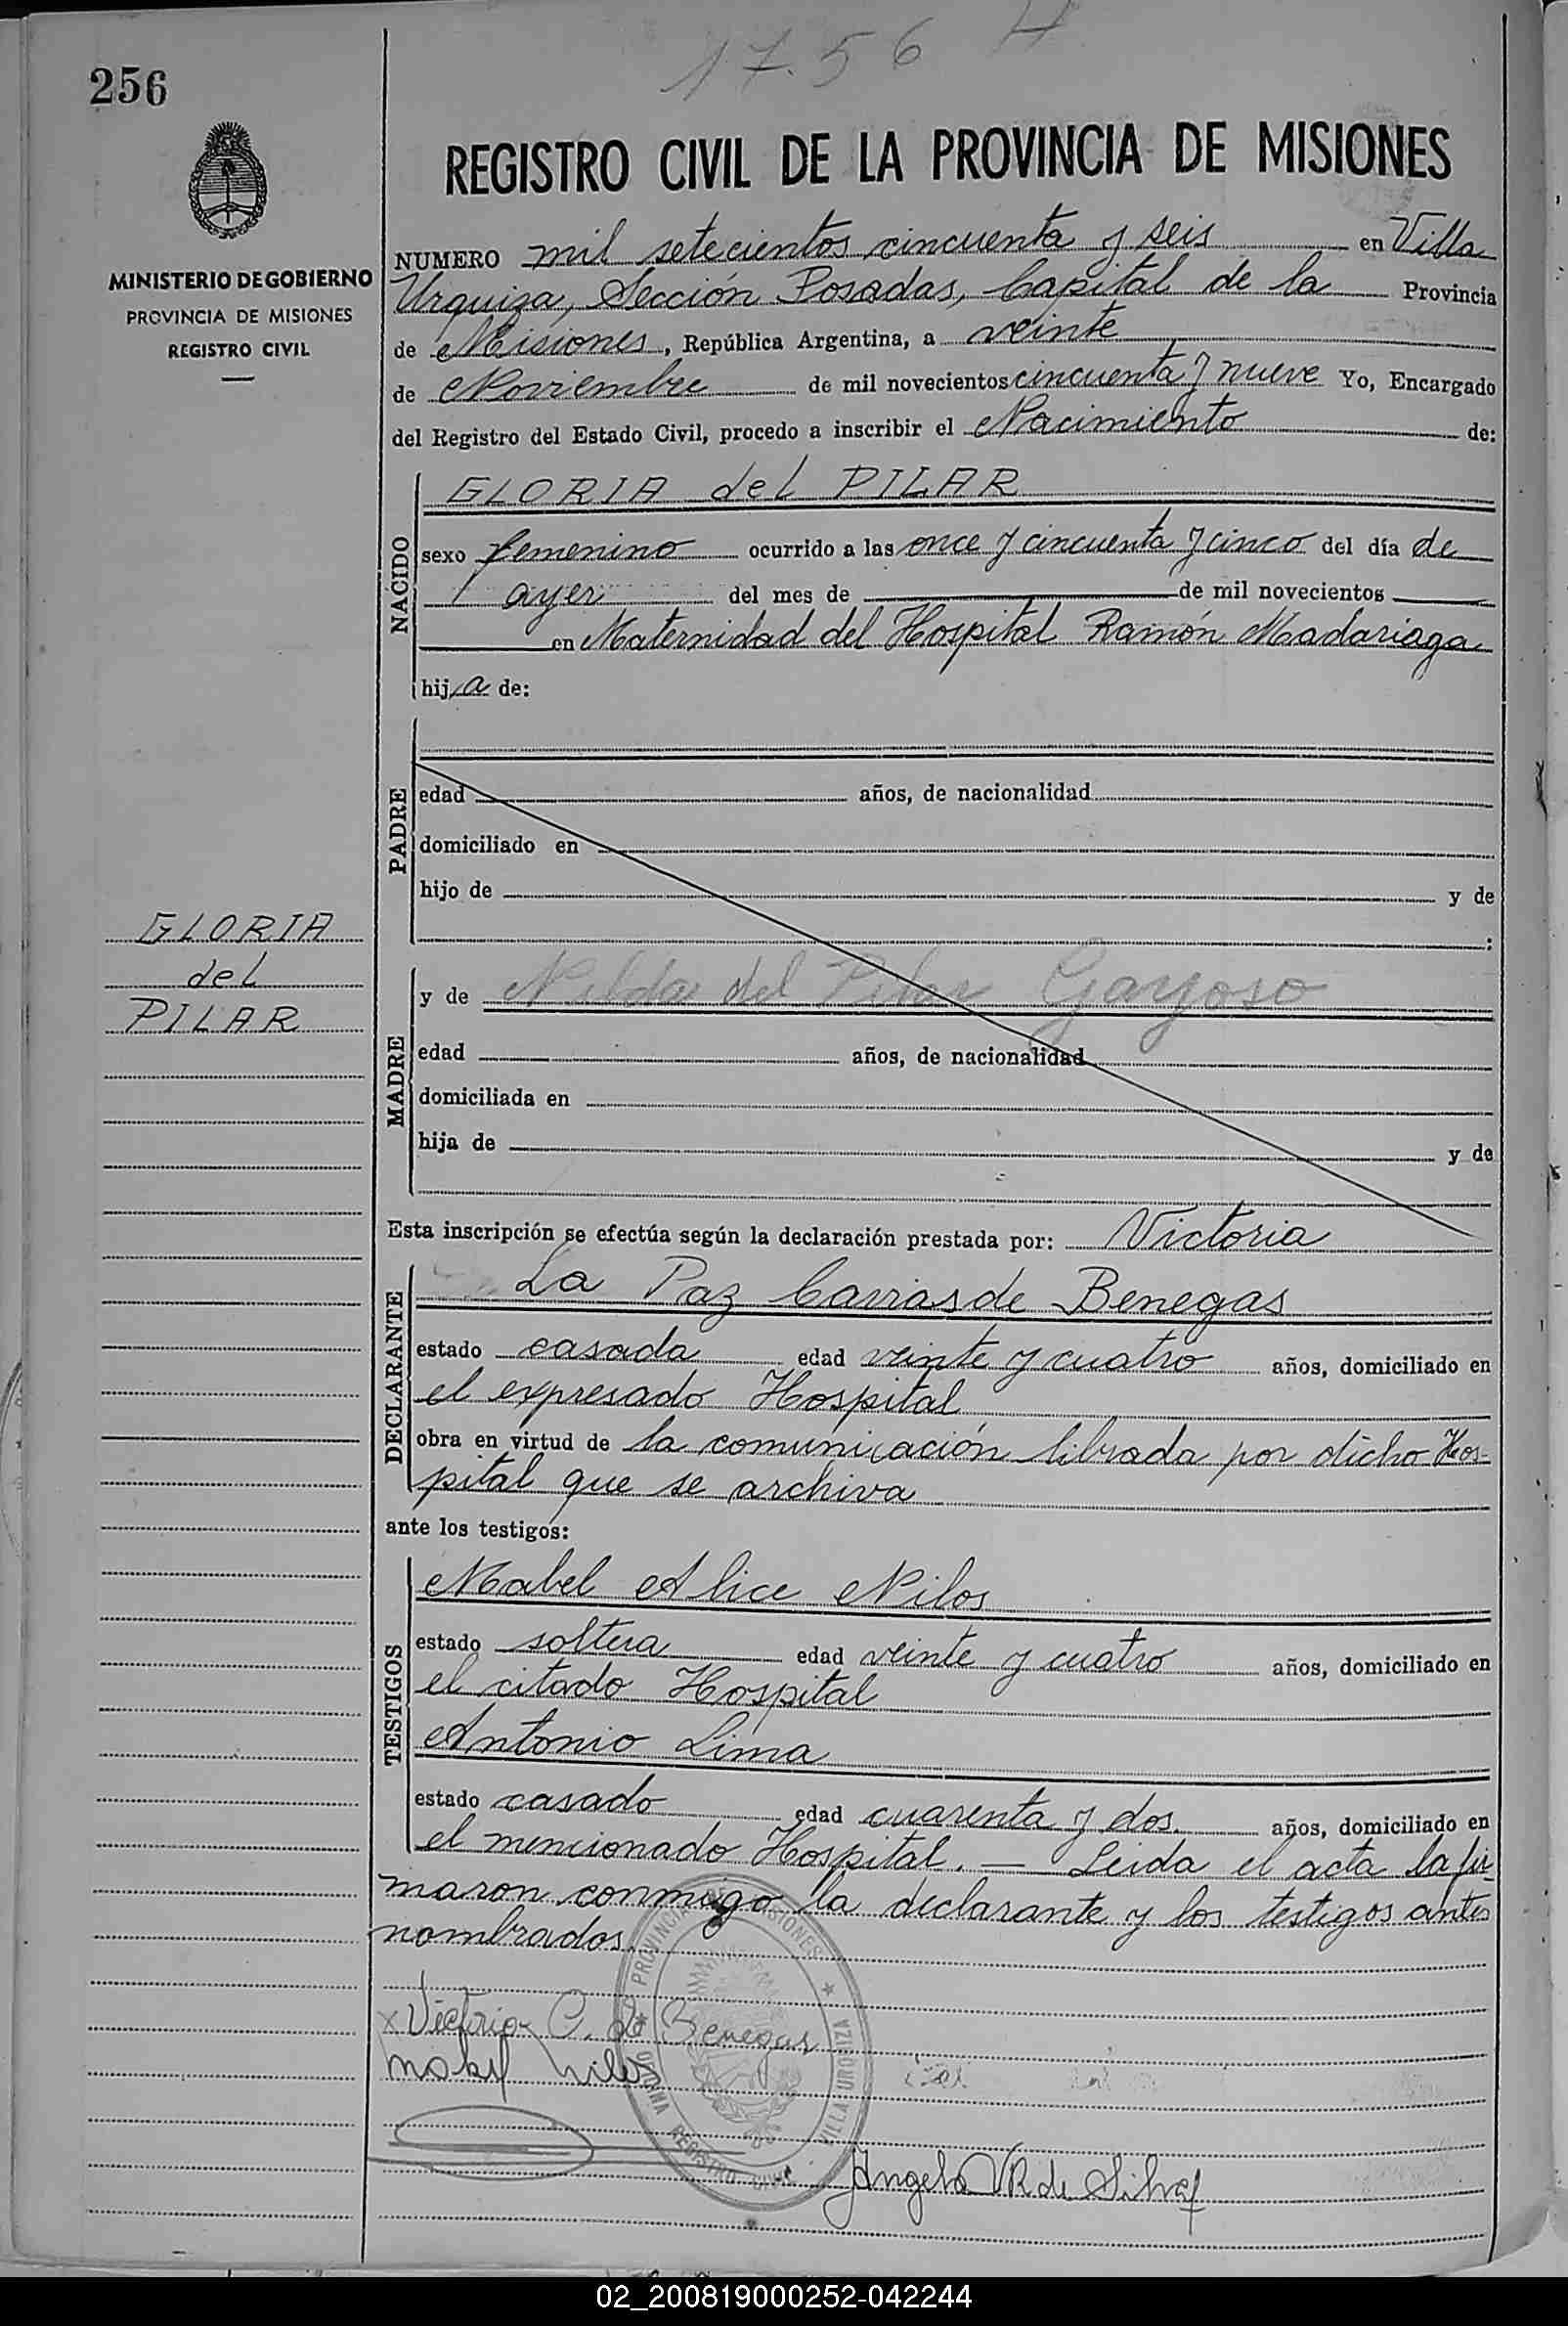 17.56
256
MINISTERIO DE GOBIERNO
PROVINCIA DE MISIONES
REGISTRO CIVIL
REGISTRO CIVIL DE LA PROVINCIA DE MISIONES
NUMERO mil setecientos cincuenta y seis en Villa
Urquiza, Sección Posadas, Capital de la Provincia
de Misiones, República Argentina, a veinte
de Noviembre de mil novecientos cincuenta y nueve Yo, Encargado
del Registro del Estado Civil, procedo a inscribir el Nacimiento de:
NACIDO
GLORIA del PILAR
sexo femenino ocurrido a las once y cincuenta y cinco del día de
ayer del mes de de mil novecientos
en Maternidad del Hospital Ramón Madariaga
hija de:
PADRE
edad años, de nacionalidad
domiciliado en
hijo de y de
:
GLORIA
del
PILAR
MADRE
y de Nilda del Pilar Gayoso
edad años, de nacionalidad
domiciliada en
hija de y de
Esta inscripción se efectúa según la declaración prestada por: Victoria
DECLARANTE
La Paz Carias de Benegas
estado casada edad veinte y cuatro años, domiciliado en
el expresado Hospital
obra en virtud de la comunicación librada por dicho Hos-
pital que se archiva
ante los testigos:
TESTIGOS
Mabel Alice Nilos
estado soltera edad veinte y cuatro años, domiciliado en
el citado Hospital
Antonio Lima
estado casado edad cuarenta y dos. años, domiciliado en
el mencionado Hospital. — Leida el acta la fir-
maron conmigo la declarante y los testigos antes
nombrados.
PROVINCIA DE MISIONES
OFICINA REGISTRO CIVIL
VILLA URQUIZA
x Victoria C. de Benegas
Mabel Nilos
Angela VR de Silva
02_200819000252-042244